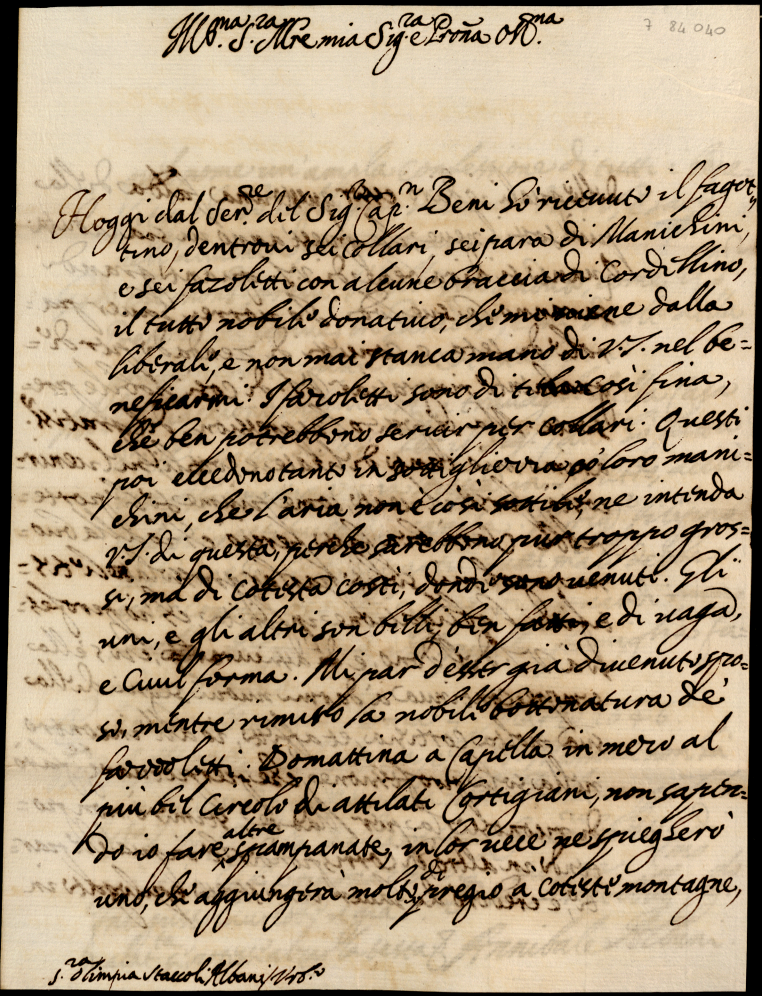 Ill.ma S.ra M.re mia Sig.ra e Proña Oss.ma
7 84 040
Hoggi dal Ser.re del Sig.r Cap.n Beni hò riceuuto il fagot-
tino, dentroui sei Collari, sei para di Manichini,
e sei fazoletti con alcune braccia di Cordellino,
il tutto nobile donatiuo, che mi uiene dalla
liberale, e non mai stanca mano di V.S. nel be=
neficarmi. I fazoletti sono di tela così fina,
che ben potrebbono seruir per collari. Questi
poi eccedono tanto in sottigliezza cò loro mani=
chini, che l'aria non è così sottile, ne intenda
V.S. di questa, perche sarebbono pur troppo gros=
si, ma di cotesta costì, donde sono uenuti. Gli
uni, e gli altri son belli, ben fatti, e di uaga,
e Ciuil forma. Mi par d'esser già diuenuto spo=
so, mentre rimiro la nobile bottonatura de'
fazzoletti. Domattina a Capella in mezo al
più bel Circolo di attilati Cortigiani, non sapen=
do io fare altre spampanate, in lor uece ne spiegherò
uno, che aggiungerà molto di pregio a coteste montagne,
S.ra Olimpia Staccoli Albani Urb.o